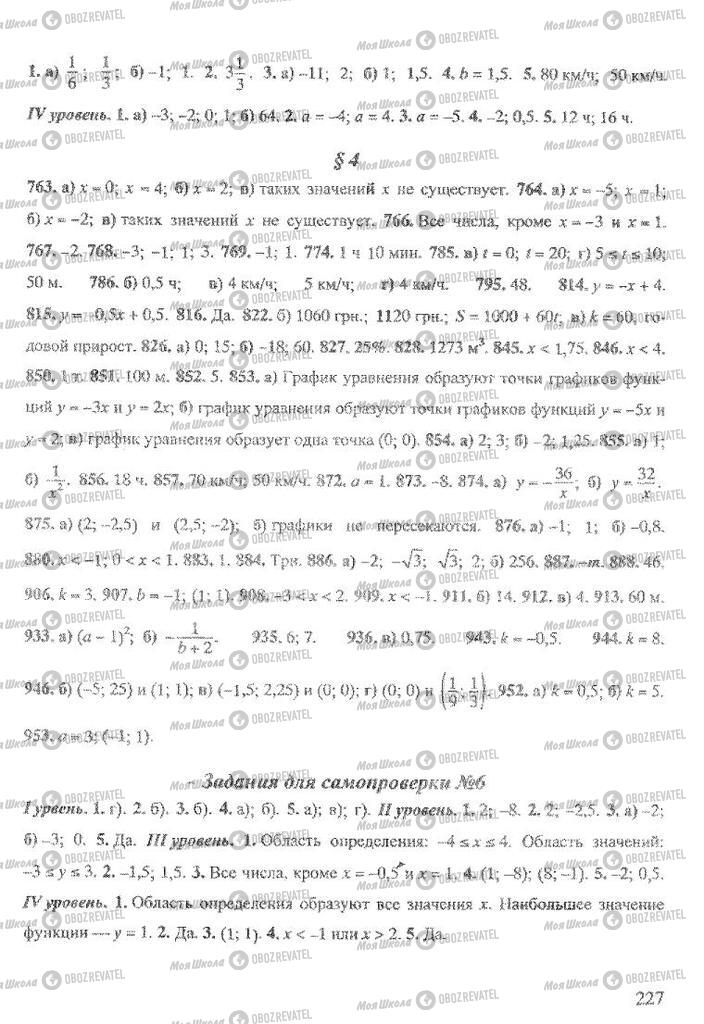 1. а) 1/6; 1/3; б) –1; 1. 2. 3 1/3. 3. а) –11; 2; б) 1; 1,5. 4. b = 1,5. 5. 80 км/ч; 50 км/ч.
IV уровень. 1. а) –3; –2; 0; 1; б) 64. 2. a = –4; a = 4. 3. a = –5. 4. –2; 0,5. 5. 12 ч; 16 ч.
§ 4
763. а) x = 0; x = 4; б) x = 2; в) таких значений x не существует. 764. а) x = –5; x = 1;
б) x = –2; в) таких значений x не существует. 766. Все числа, кроме x = –3 и x = 1.
767. –2. 768. –3; –1; 1; 3. 769. –1; 1. 774. 1 ч 10 мин. 785. в) t = 0; t = 20; г) 5 ≤ t ≤ 10;
50 м. 786. б) 0,5 ч; в) 4 км/ч; 5 км/ч; г) 4 км/ч. 795. 48. 814. y = –x + 4.
815. y = –0,5x + 0,5. 816. Да. 822. б) 1060 грн.; 1120 грн.; S = 1000 + 60t; в) k = 60, го-
довой прирост. 826. а) 0; 15; б) –18; 60. 827. 25%. 828. 1273 м³. 845. x < 1,75. 846. x < 4.
850. 1 т. 851. 100 м. 852. 5. 853. а) График уравнения образуют точки графиков функ-
ций y = –3x и y = 2x; б) график уравнения образуют точки графиков функций y = –5x и
y = 2; в) график уравнения образует одна точка (0; 0). 854. а) 2; 3; б) –2; 1,25. 855. а) 1;
б) 1/x². 856. 18 ч. 857. 70 км/ч; 50 км/ч. 872. a = 1. 873. –8. 874. а) y = –36/x; б) y = 32/x.
875. а) (2; –2,5) и (2,5; –2); б) графики не пересекаются. 876. а) –1; 1; б) –0,8.
880. x < –1; 0 < x < 1. 883. 1. 884. Три. 886. а) –2; –√3; √3; 2; б) 256. 887. –m. 888. 46.
906. k = 3. 907. b = –1; (1; 1). 908. –3 < x < 2. 909. x < –1. 911. б) 14. 912. в) 4. 913. 60 м.
933. а) (a – 1)²; б) –1/(b + 2). 935. 6; 7. 936. в) 0,75. 943. k = –0,5. 944. k = 8.
946. б) (–5; 25) и (1; 1); в) (–1,5; 2,25) и (0; 0); г) (0; 0) и (1/9; 1/3). 952. а) k = 0,5; б) k = 5.
953. a = 3; (–1; 1).
Задания для самопроверки №6
I уровень. 1. г). 2. б). 3. б). 4. а); б). 5. а); в); г). II уровень. 1. 2; –8. 2. 2; –2,5. 3. а) –2;
б) –3; 0. 5. Да. III уровень. 1. Область определения: –4 ≤ x ≤ 4. Область значений:
–3 ≤ y ≤ 3. 2. –1,5; 1,5. 3. Все числа, кроме x = –0,5 и x = 1. 4. (1; –8); (8; –1). 5. –2; 0,5.
IV уровень. 1. Область определения образуют все значения x. Наибольшее значение
функции — y = 1. 2. Да. 3. (1; 1). 4. x < –1 или x > 2. 5. Да.
227